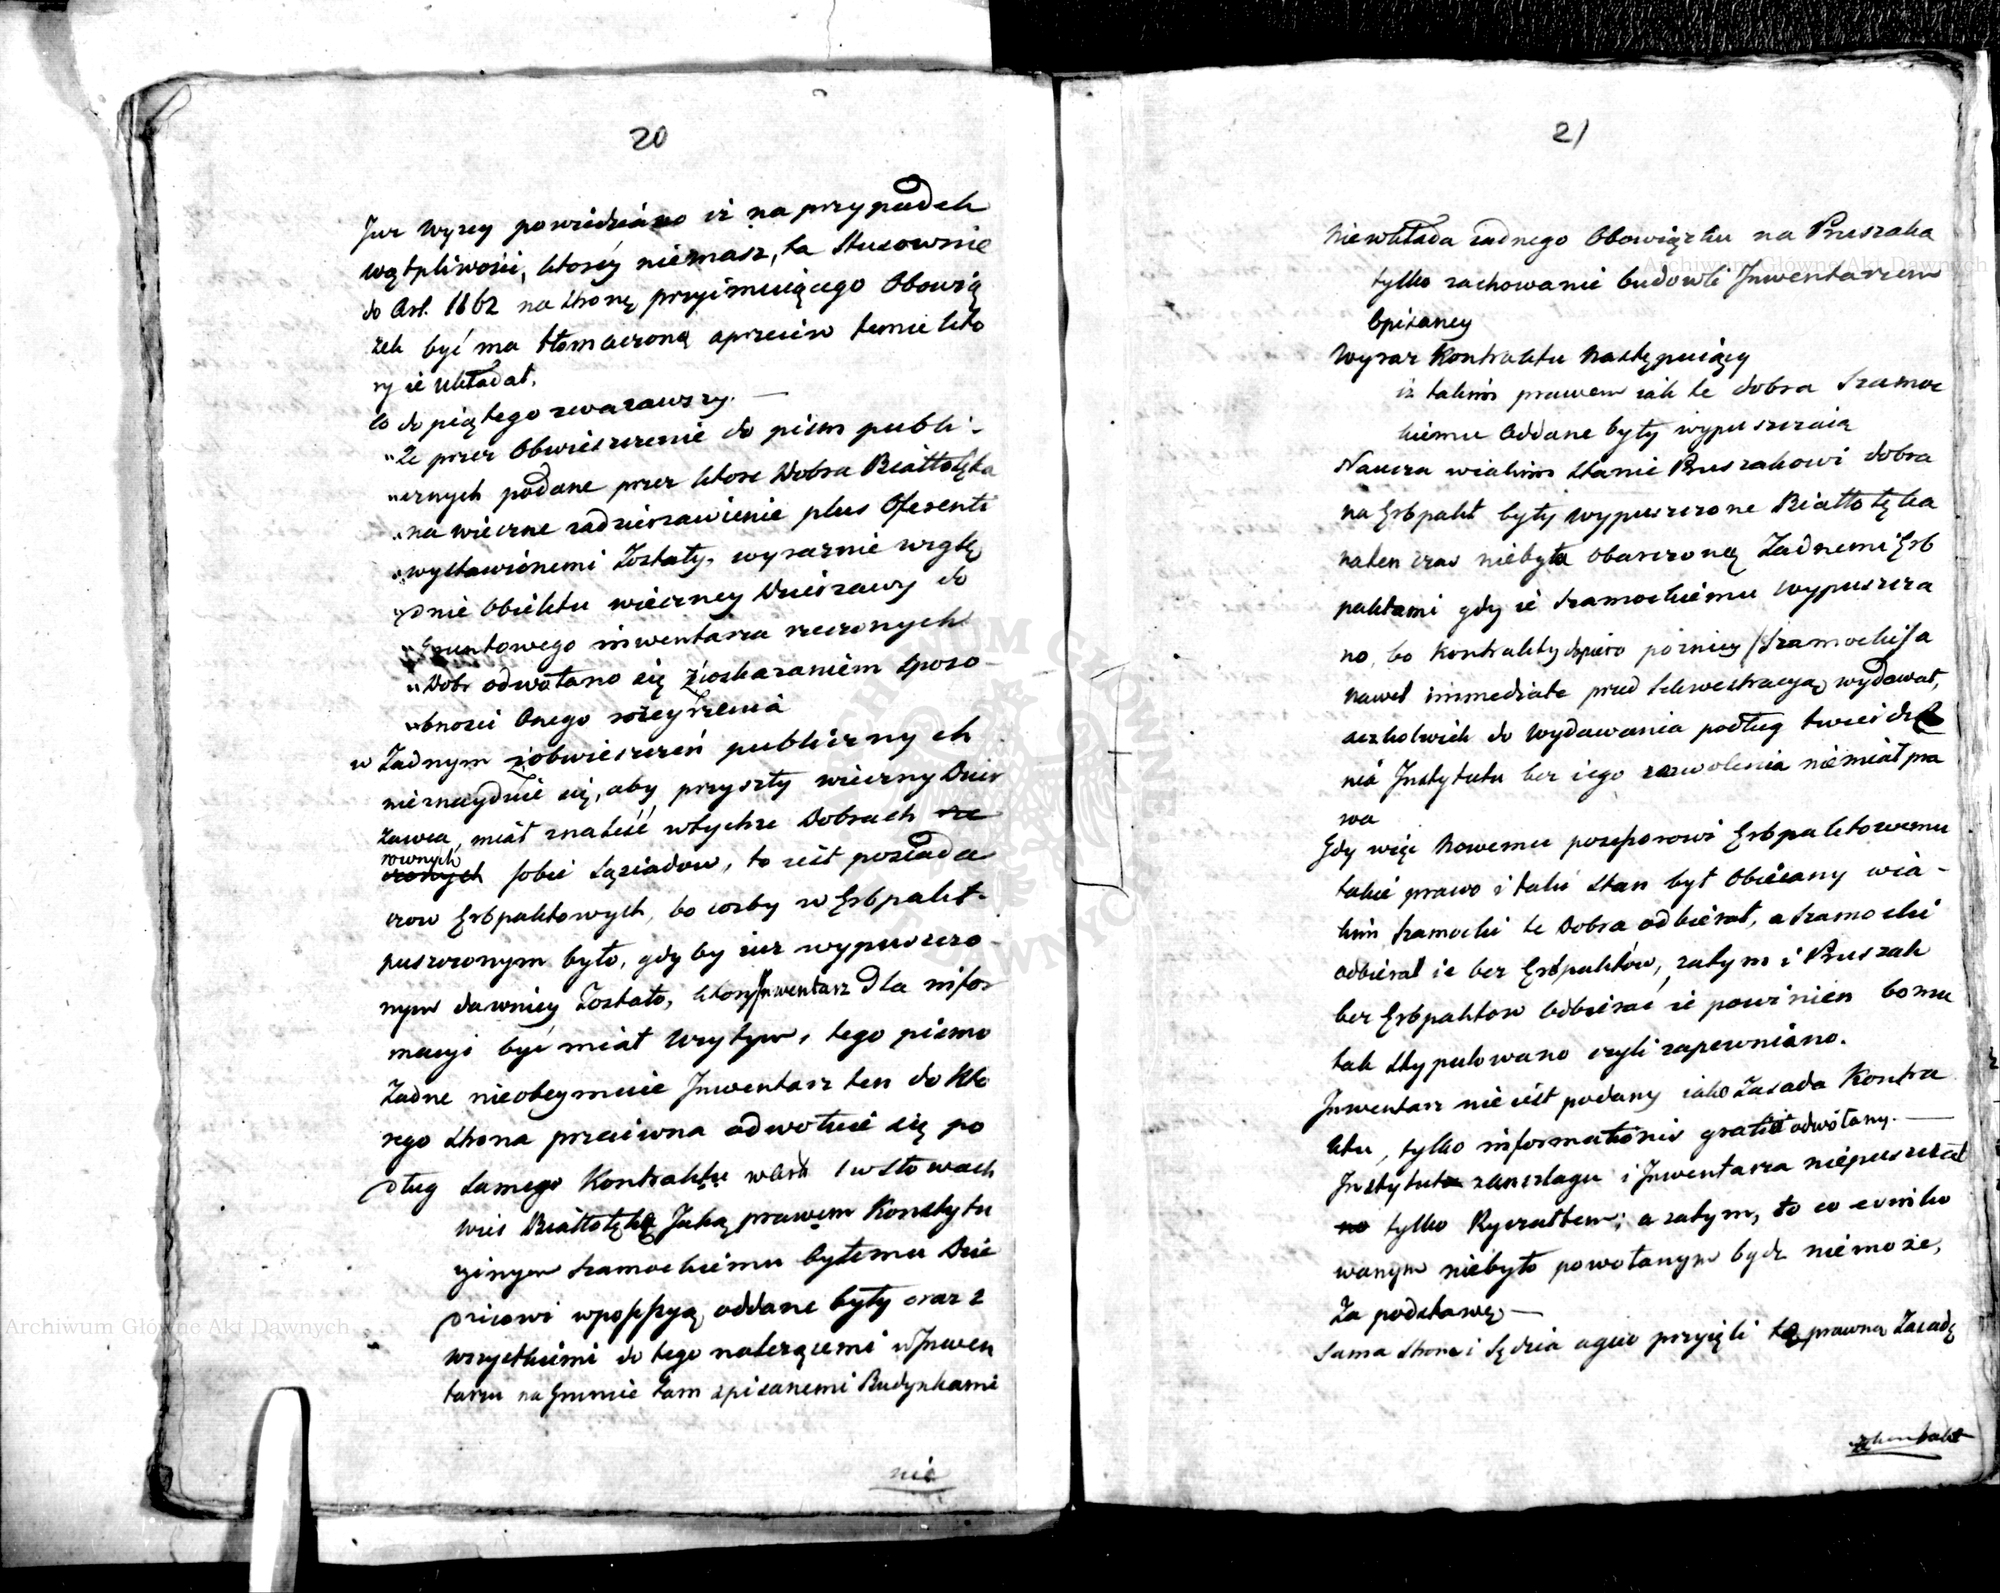 20
Juz wyzey powiedziano iz na przypadek
wątpliwości, ktorey niemasz, ta stusownie
do Art. 1162 na stronę przyimuiącego Obowią
zek być ma tłomaczoną aprzeciw temu kto
ry ie układał.
Co do piątego zwazawszy. —
„Ze przez Obwieszczenie do pism publi-
„cznych podane przez ktore Dobra Białłołęka
„na wieczne zadzierzawienie plus Oferenti
„wystawionemi Zostały, wyraznie wzglę
„dnie Obiektu wieczney Dzierzawy do
„Gruntowego inwentarza rzeczonych
„Dobr odwołano się zioskazaniem sposo-
„bnosci Onego roźeyrzenia
w Zadnym zobwieszczeń publicznych
nieznaydzie się, aby przyszły wieczny Dzier
zawca, miał znaleść wtychze Dobrach
rownych
sobie Sąsiadow, to iest posiada
czow Erbpaktowych, bo cozby w Erbpakt
puszczonym było, gdy by iuz wypuszczo-
nym dawniey Zostało, ktory Inwentarz dla infor
macyi być miał wzytym, tego pismo
Zadne nieobeymuie Inwentarz ten do kto
rego strona przeciwna odwołuie się po
dług samego Kontraktu w słowach
wies Białłołękę Jaką prawem Konstytu
cyinym Szamockiemu byłemu Dzie
dzicowi wpossesyą oddane były oraz z
wszystkiemi do tego nalezącemi w Inwen
tarzu na Gruncie tam spisanemi Budynkami
nie
21
niewkłada zadnego Obowiązku na Pruszaka
tylko zachowanie budowli Inwentarzem
Opisaney
Wyraz Kontraktu Następuiący
iz takim prawem iak te dobra Szamoc
kiemu Oddane były wypuszczaią
Naucza wiakim stanie Pruszakowi dobra
na Erbpakt były wypuszczone Białłołęka
naten czas niebyła Obarczoną Zadnemi Erb
paktami gdy ie Szamockiemu wypuszcza
no, bo Kontrakty dopiero pózniey Szamocki a
nawet immediate przed sekwestracyą wydawał,
aczkolwiek do Wydawania podług twierdze
nia Instytutu bez iego zezwolenia niemiał pra
wa
Gdy więc Nowemu possessorowi Erbpaktowemu
takie prawo i taki stan był Obiecany wia-
kim Szamocki te Dobra odbierał, a Szamocki
odbierał ie bez Erbpaktów, zatym i Pruszak
bez Erbpaktow Odbierać ie powinien bo mu
tak stypulowano czyli zapewniano.
Inwentarz nie iest podany iako Zasada Kontra
ktu, tylko informationis gratia odwołany. —
Instytut zanszlagu i Inwentarza niepuszczał
tylko Ryczałtem; a zatym, to co
wanym niebyło powołanym bydz niemoze,
Za podstawę —
Sama strona i Sędzia aquo przyięli tę prawną Zasadę
Archiwum Główne Akt Dawnych
Archiwum Główne Akt Dawnych
ARCHIWUM GŁÓWNE AKT DAWNYCH